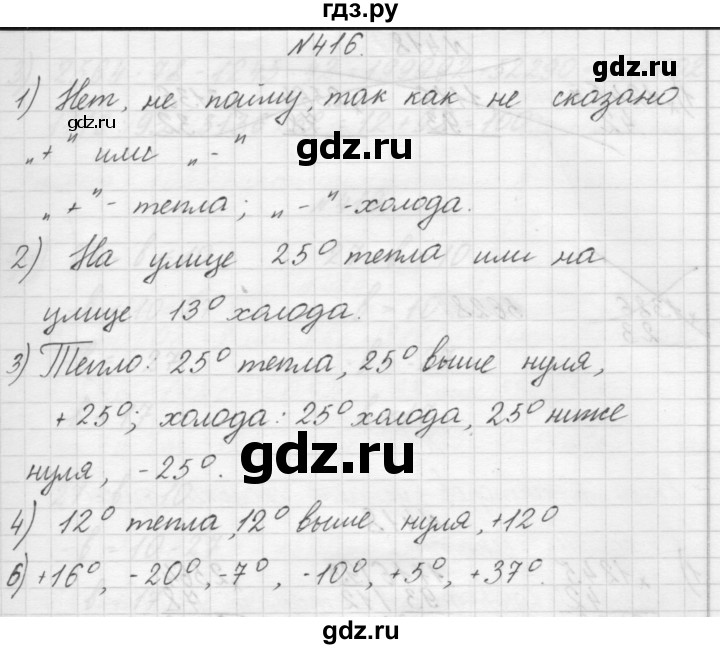 гдз.ру
№416.
1) Нет, не пойму, так как не сказано
gdz.ru
„+" или „-"
gdz.ru
„+"- тепла; „-"-холода.
2) На улице 25° тепла или на
улице 13° холода.
3) Тепло: 25° тепла, 25° выше нуля,
+25°; холода: 25° холода, 25° ниже
нуля, -25°.
gdz.ru
4) 12° тепла, 12° выше нуля, +12°
6) +16°, -20°, -7°, -10°, +5°, +37°.
gdz.ru